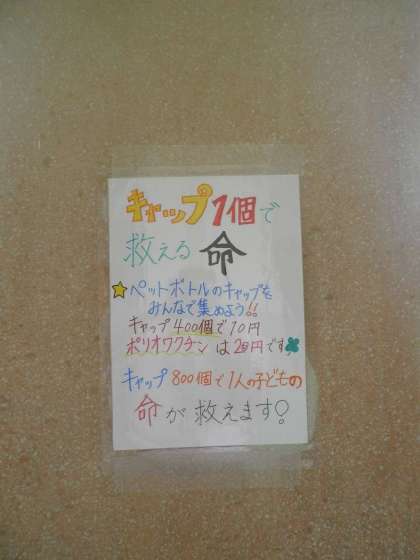 キャップ1個で
救える命
ペットボトルのキャップを
みんなで集めよう!!
キャップ400個で10円
ポリオワクチンは20円です
キャップ800個で1人の子どもの
命が救えます!